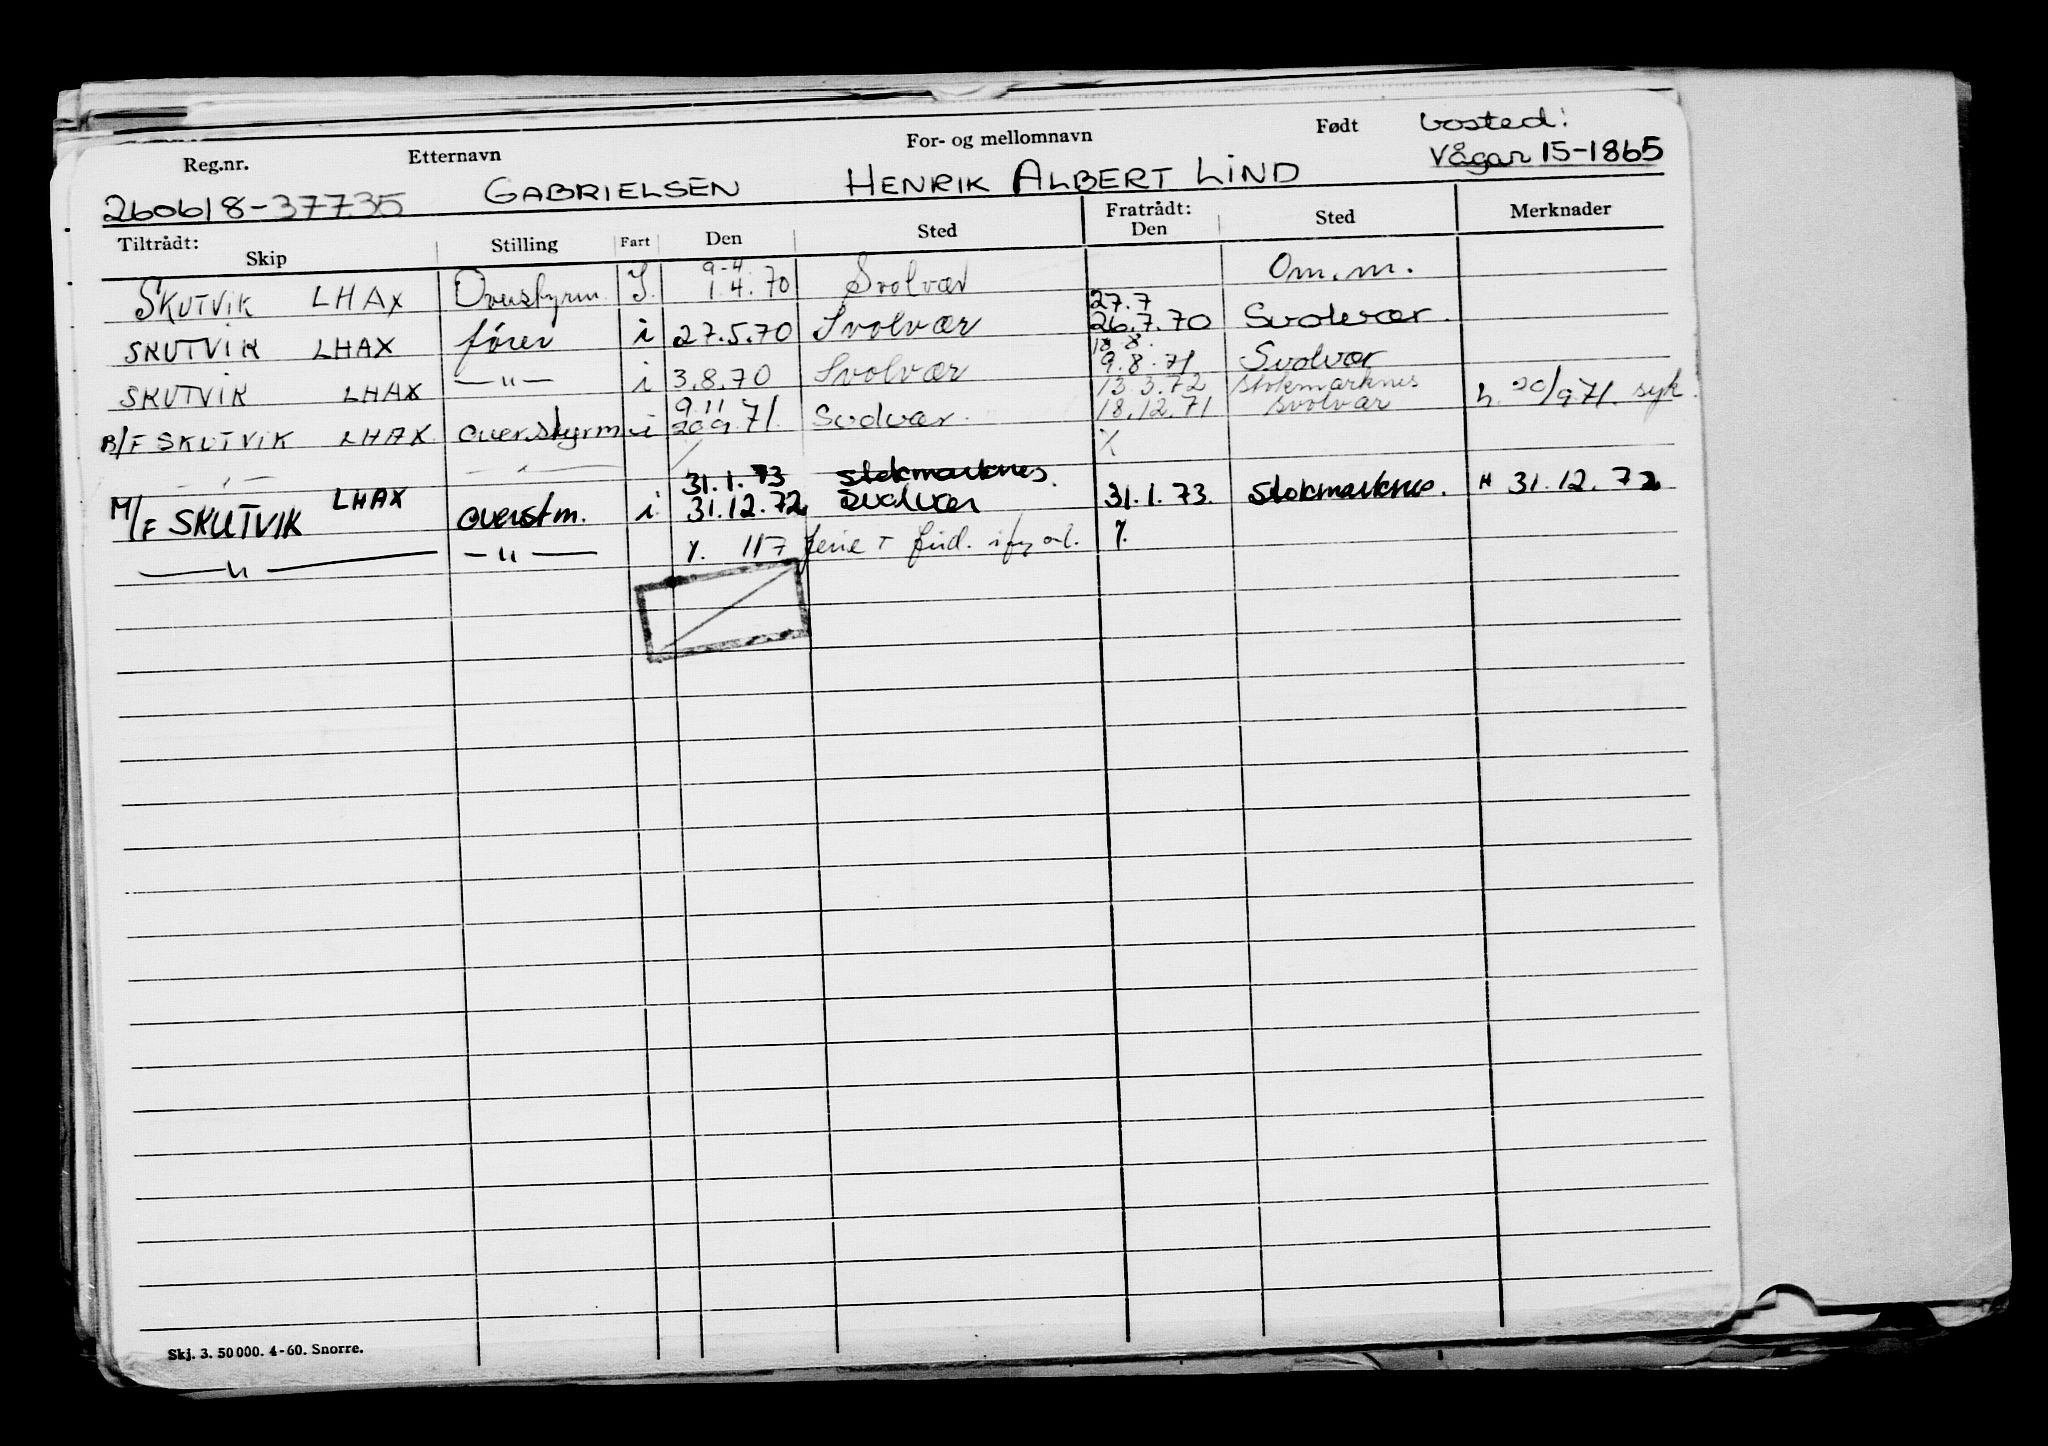 Reg.nr. Etternavn For- og mellomnavn Født bosted:
260618-37735 GABRIELSEN HENRIK ALBERT LIND Vågan 15-1865
Tiltrådt: Skip Stilling Fart Den Sted Fratrådt: Den Sted Merknader
9-4
SKUTVIK LHAX Overstyrm. 1.4.70 Svolvær Om.m.
27.7
SKUTVIK LHAX fører i 27.5.70 Svolvær 26.7.70 Svolvær.
SKUTVIK LHAX —"— i 3.8.70 Svolvær 9.8.71 Svolvær
9.11 13.3.72 Stokmarknes
B/F SKUTVIK LHAX overstyrm i 20.9.71. Svolvær. 18.12.71 Svolvær h. 20/9 71. syk.
—"— —"— ⁒ ⁒
31.1.73 stokmarknes.
M/F SKUTVIK LHAX overstm. i 31.12.72 Svolvær 31.1.73. Stokmarknes. H 31.12.72
—"— —"— ⁒ 117 ferie ⁒
Skj. 3. 50 000. 4-60. Snorre.